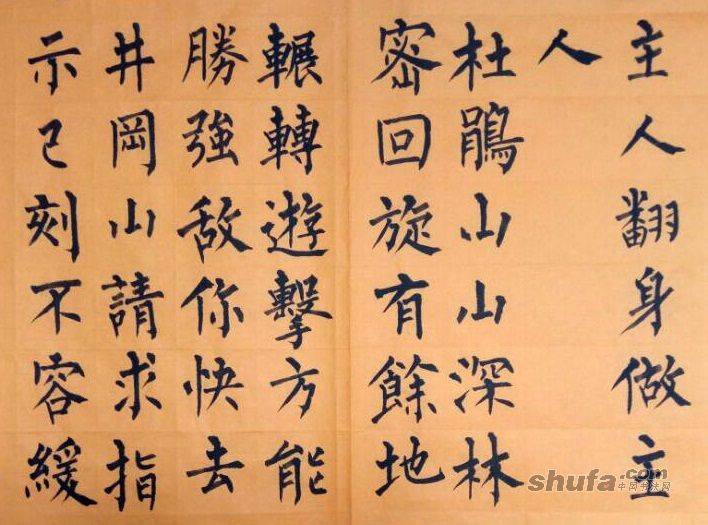 主人翻身做主
人
杜鵑山山深林
密回旋有餘地
輾轉遊擊方能
勝強敵你快去
井岡山請求指
示已刻不容緩
shufa.com
中国书法网